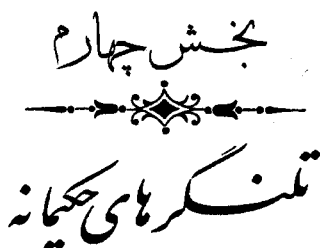 بخش چهارم
تلنگرهای حکیمانه